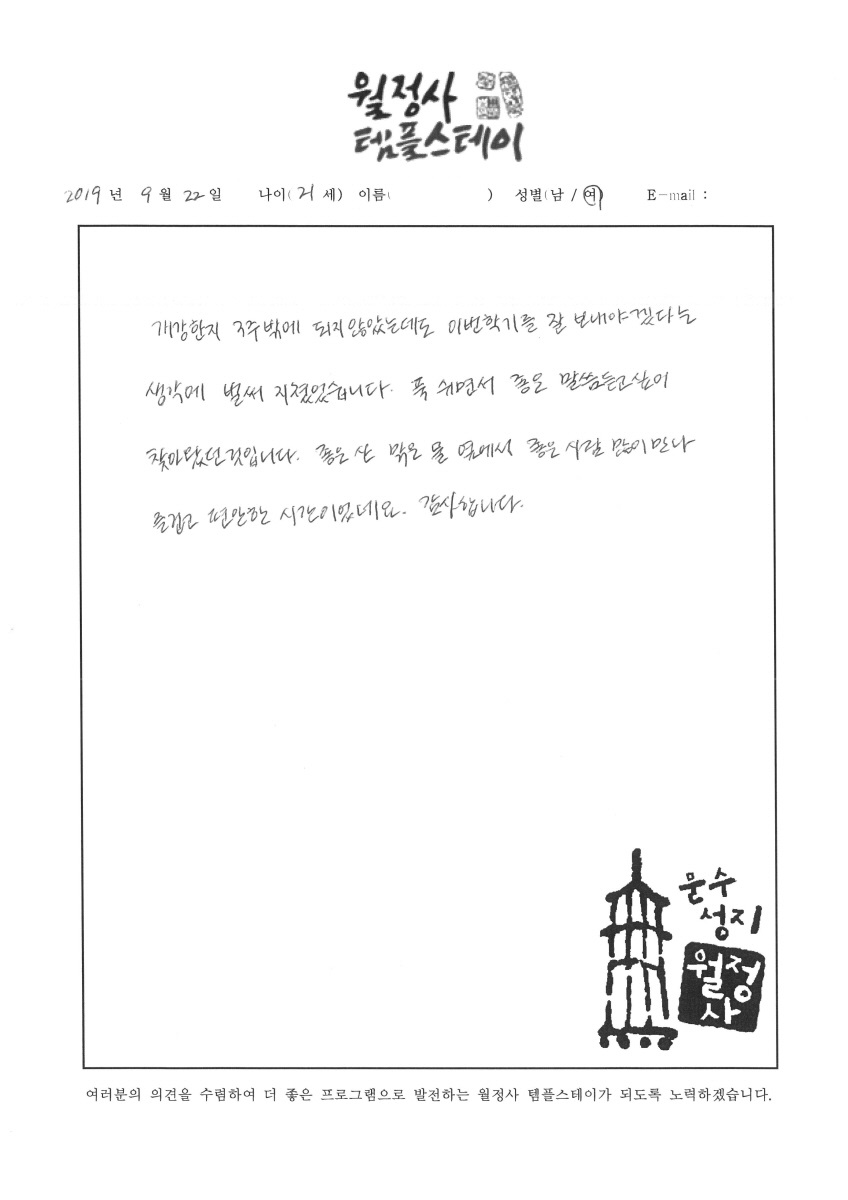 월정사
템플스테이
2019 년 9 월 22 일 나이( 21 세) 이름( ) 성별(남 / 여) E-mail :
개강한지 3주밖에 되지 않았는데도 이번학기를 잘 보내야겠다는
생각에 벌써 지쳤었습니다. 푹 쉬면서 좋은 말씀듣고싶어
찾아왔던것입니다. 좋은 산 맑은 물 옆에서 좋은 사람 많이 만나
즐겁고 편안한 시간이었네요. 감사합니다.
문수
성지
월정
사
여러분의 의견을 수렴하여 더 좋은 프로그램으로 발전하는 월정사 템플스테이가 되도록 노력하겠습니다.